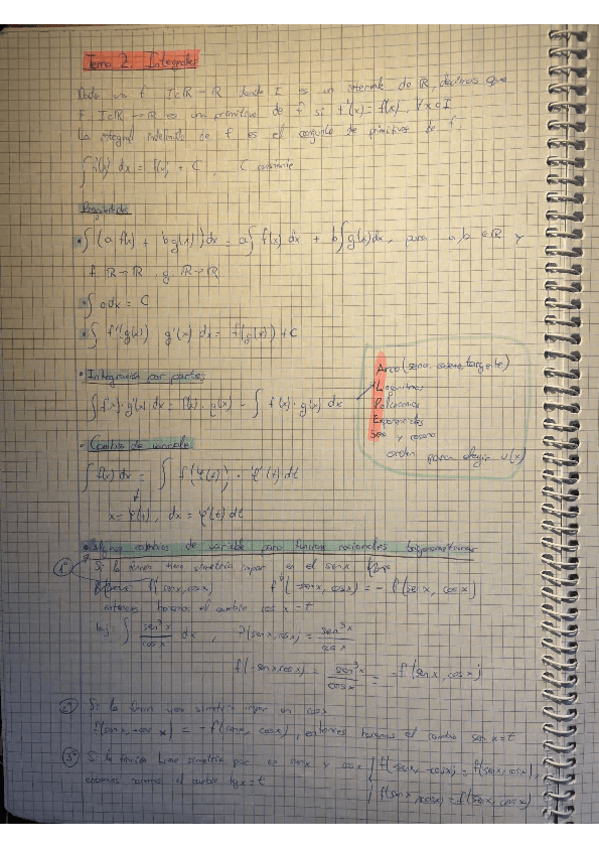 Tema 2. Integrales
Dada una f: I⊂R→R donde I es un intervalo de R, decimos que
F: I⊂R→R es una primitiva de f si F'(x) = f(x), ∀x∈I
La integral indefinida de f es el conjunto de primitivas de f.
∫ f(x) dx = F(x) + C, C constante
Propiedades
• ∫(a f(x) + b g(x)) dx = a∫ f(x) dx + b∫ g(x) dx, para a,b ∈ R y
f: R→R, g: R→R
• ∫ 0 dx = C
• ∫ f'(g(x)) g'(x) dx = f(g(x)) + C
• Integración por partes
∫ f(x)·g'(x) dx = f(x)·g(x) - ∫ f'(x)·g(x) dx
Arco (seno, coseno, tangente)
Logaritmos
Polinomios
Exponenciales
Sen y coseno
orden para elegir u(x)
• Cambio de variable
∫ f(x) dx = ∫ f(φ(t))·φ'(t) dt
x = φ(t), dx = φ'(t) dt
• Algunos cambios de variable para funciones racionales trigonométricas
1º Si la función tiene simetría impar en el sen x
f(senx, cosx) f(-senx, cosx) = -f(senx, cosx)
entonces hacemos el cambio cos x = t
Ej: ∫ sen³x/cosx dx, f(senx, cosx) = sen³x/cosx
f(-senx, cosx) = -sen³x/cosx = -f(senx, cosx)
2º Si la función tiene simetría impar en cosx
f(senx, -cosx) = -f(senx, cosx), entonces hacemos el cambio senx = t
3º Si la función tiene simetría par en senx y cosx { f(-senx, -cosx) = f(senx, cosx),
entonces hacemos el cambio tgx = t